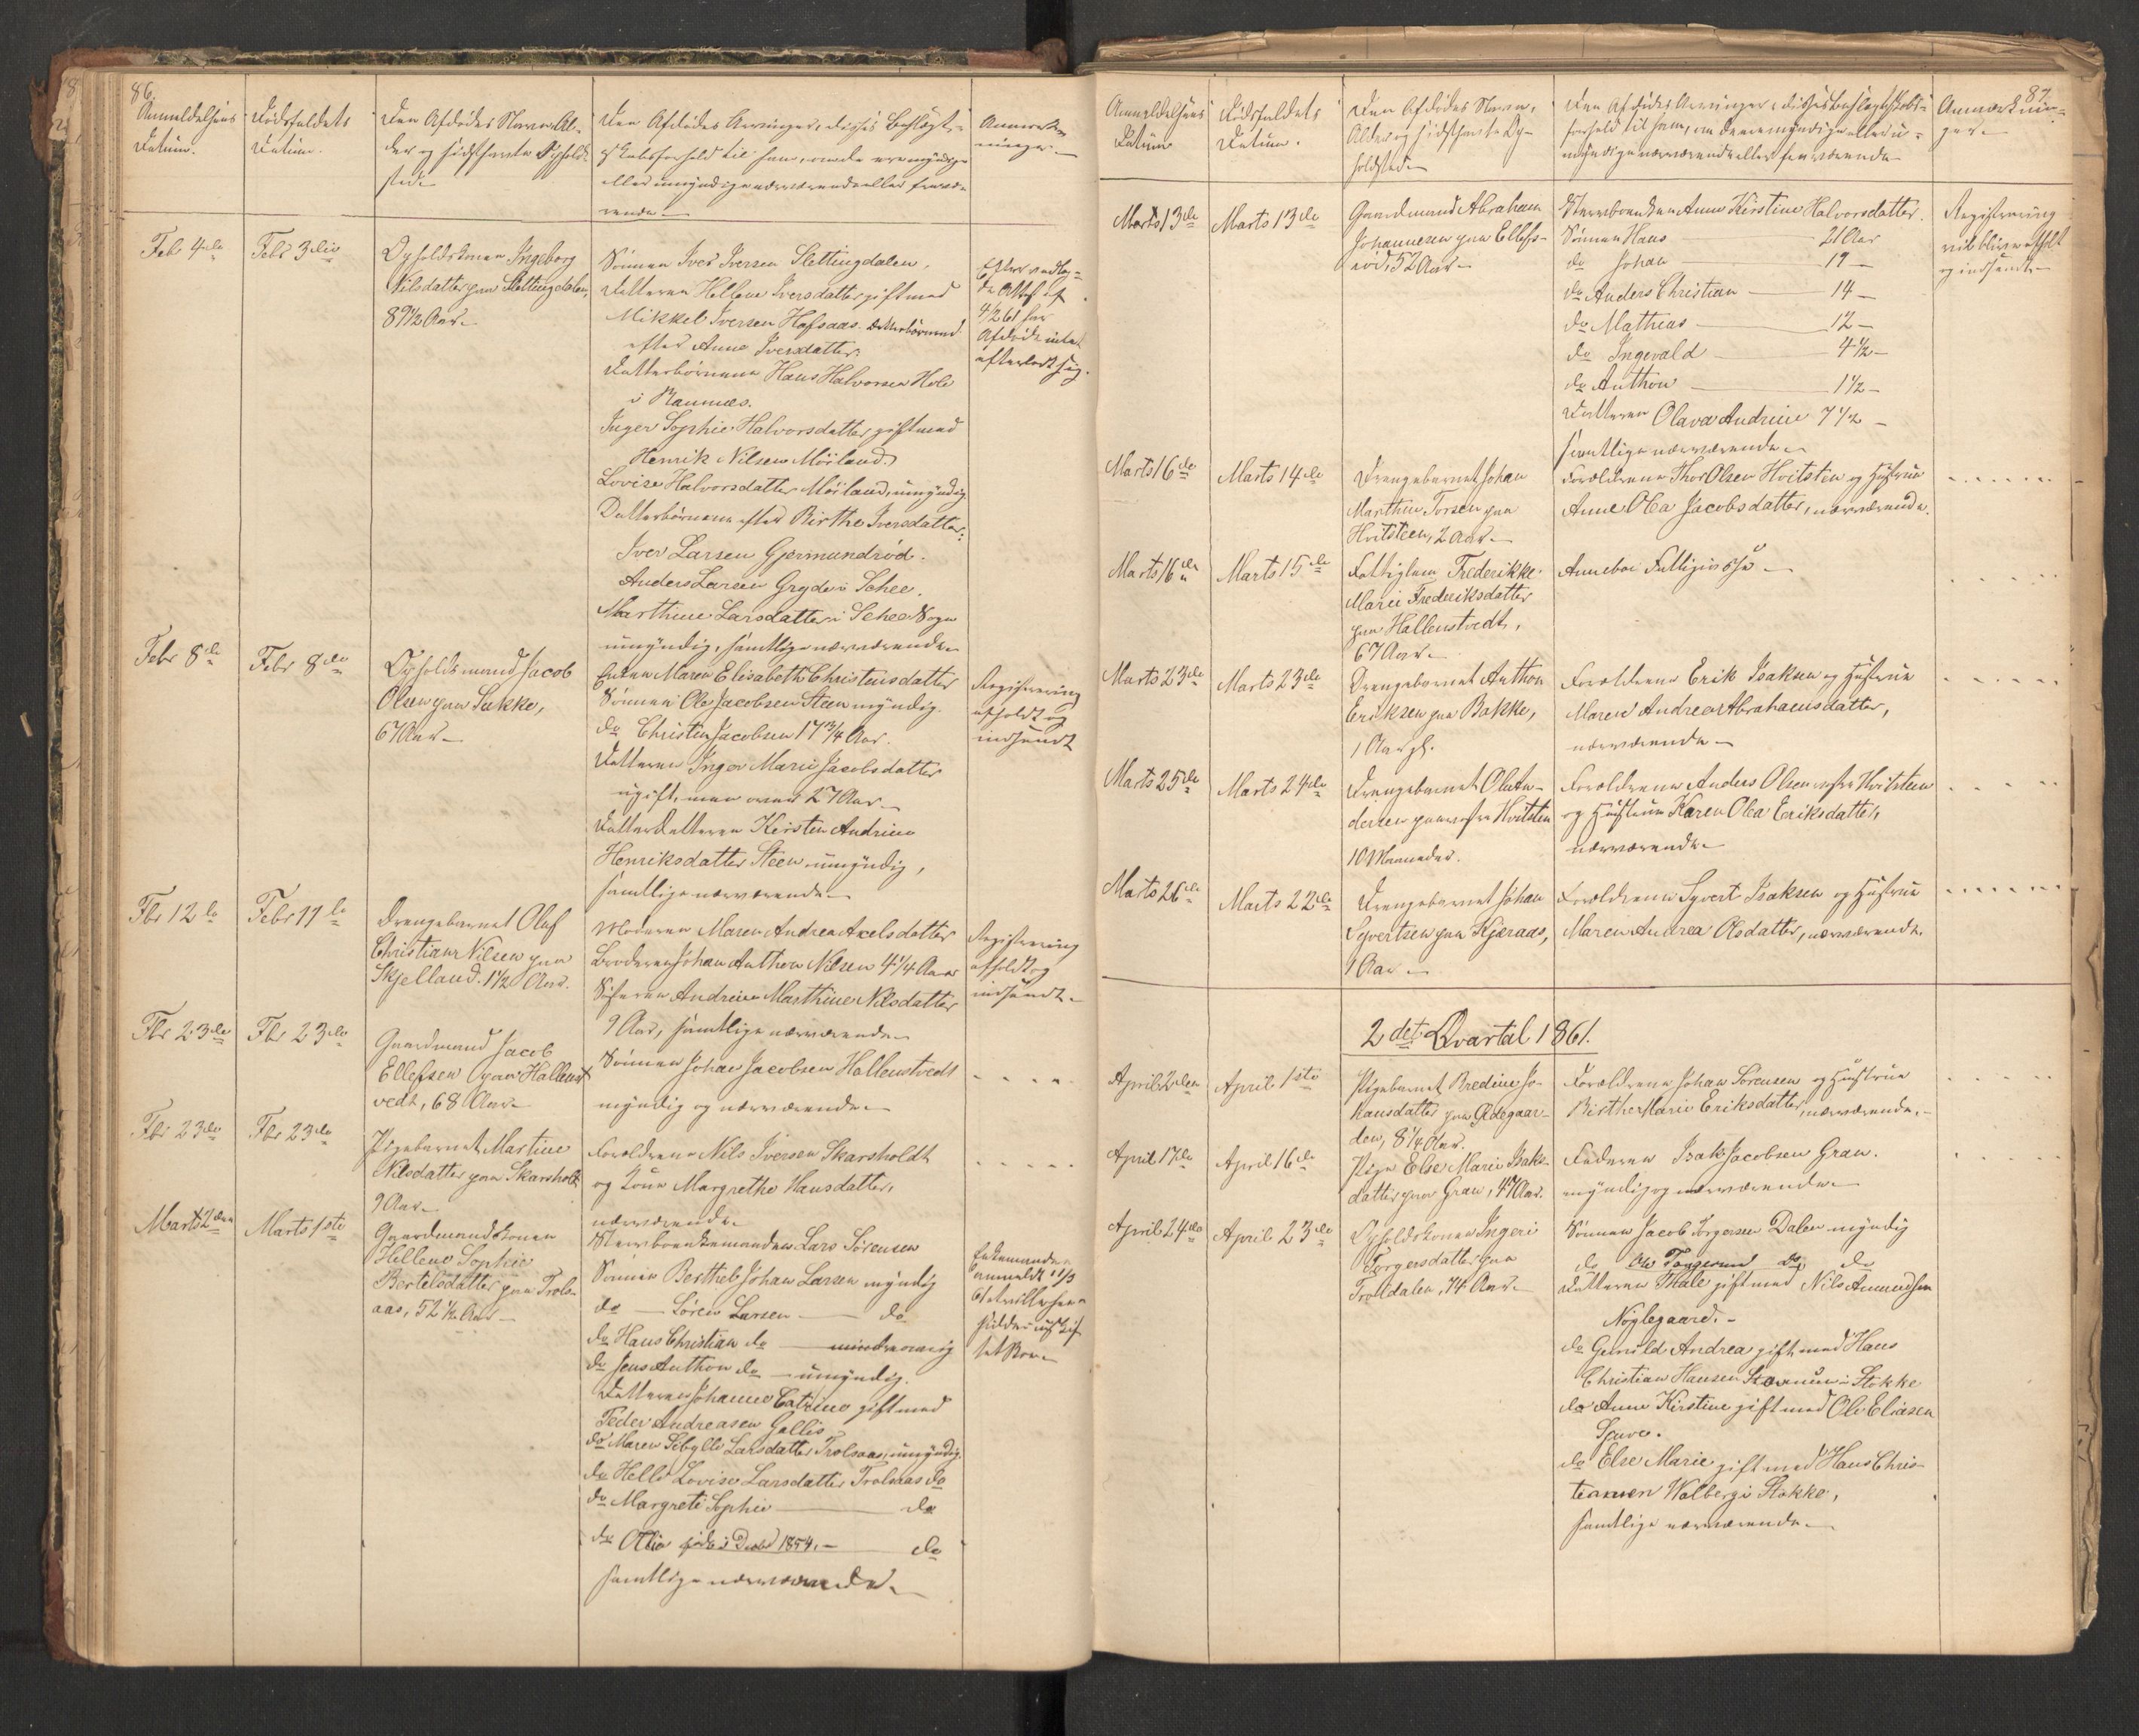 86.
Anmeldelsens
Datum.
Dødsfaldets
Datum.
Den Afdødes Navn, Al-
der og sidsthavte Opholds-
sted.
Den Afdødes Arvinger, disses Beslægt-
skabsforhold til ham, om de ere myndige
eller umyndige nærværende eller fravæ-
rende.
Anmærk-
ninger.
Feb 4de
Febr 3die
Opholdskonen Ingeborg
Nilsdatter paa Slettingdalen,
89 1/2 Aar.
Sønnen Iver Iversen Slettingdalen,
Datteren Hellene Iversdatter gift med
Mikkel Iversen Hafsaas. Datterbørnene
efter Anne Iversdatter:
Datterbørnene Hans Halvorsen Hole
i Ramnæs.
Inger Sophie Halvorsdatter gift med
Henrik Nilsen Möiland.
Lovise Halvorsdatter Möiland, umyndig
Datterbørnene efter Birthe Iversdatter:
Iver Larsen Gjermundröd.
Anders Larsen Gryde i Schee.
Marthine Larsdatter i Schee Sogn
umyndig, samtlige nærværende.
Efter vedlag-
te Attest af
4/2 61 har
Afdøde intet
efterladt sig.
Febr 8de
Febr 8de
Opholdsmand Jacob
Olsen paa Sukke,
67 Aar.
Enken Maren Elisabeth Christensdatter
Sønnen Ole Jacobsen Steen myndig.
do Christen Jacobsen 17 3/4 Aar.
Datteren Inger Marie Jacobsdatter
ugift, men over 27 Aar.
Datterdatteren Kirsten Andrine
Henriksdatter Steen umyndig,
samtlige nærværende.
Registrering
afholdt og
indsendt
Fbr 12te
Febr 11te
Drengebarnet Oluf
Christian Nilsen paa
Skjelland. 1 1/2 Aar.
Moderen Maren Andrea Axelsdatter
Broderen Johan Anthon Nilsen 4 1/4 Aar
Søsteren Andreine Marthine Nilsdatter
9 Aar, samtlige nærværende.
Registrering
afholdt og
indsendt.
Fbr 23de
Fbr 23de
Gaardmand Jacob
Ellefsen paa Hallenst
vedt, 68 Aar.
Sønnen Johan Jacobsen Hallenstvedt
myndig og nærværende.
Fbr 23de
Fbr 23de
Pigebarnet Martine
Nilsdatter paa Skarsholt
9 Aar.
Forældrene Nils Iversen Skarsholdt
og Kone Margrethe Hansdatter,
nærværende.
Marts 2den
Marts 1ste
Gaardmandskonen
Hellene Sophie
Bertelsdatter paa Trols-
aas, 52 1/2 Aar
Stervboenkemanden Lars Sörensen
Sønnen Berthel Johan Larsen myndig
do — Sören Larsen — do
do Hans Christian do — mindreaarig
do Jens Anthon do — umyndig.
Datteren Johanne Catrine gift med
Peder Andreasen Gallis
do Maren Sibylle Larsdatter Trolsaas, umyndig.
do Helle Lovise Larsdatter Trolsaas do
do Margrete Sophie — do
do Olia født i Decbr 1854. — do
samtlige nærværende.
Enkemanden
anmeldt 1/3
61 at ville hen-
sidde i uskif-
tet Bo.
87.
Anmeldelsens
Datum
Dødsfaldets
Datum.
Den Afdødes Navn,
Alder og sidsthavte Op-
holdsted.
Den Afdødes Arvinger, disses Beslægtskabs-
forhold til ham, om de ere myndige eller u-
myndige nærværende eller fraværende
Anmærknin-
ger.
Marts 13de
Marts 13de
Gaardmand Abraham
Johannesen paa Ellefs-
röd, 52 Aar.
Stervboenken Anne Kirstine Halvorsdatter.
Sønnen Hans — 21 Aar
do Johan — 19 —
do Anders Christian — 14 —
do Mathias — 12 —
do Ingevald — 4 1/2 —
do Anthon — 1 1/2 —
Datteren Olava Andrine 7 1/2 —
samtlige nærværende.
Registrering
vil blive afholdt
og indsendt.
Marts 16de
Marts 14de
Drengebarnet Johan
Marthin Torsen paa
Hvitsteen, 2 Aar.
Forældrene Thor Olsen Hvitsten og Hustrue
Anne Olea Jacobsdatter, nærværende.
Marts 16de
Marts 15de
Fattiglem Frederikke
Marie Frederiksdatter
paa Hallenstvedt,
67 Aar.
Anneboe Fattigvæsen
Marts 23de
Marts 23de
Drengebarnet Anthon
Eriksen paa Bakke,
1 Aar gl.
Forældrene Erik Isaksen og Hustrue
Maren Andrea Abrahamsdatter,
nærværende.
Marts 25de
Marts 24de
Drengebarnet Ole An-
dersen paa vestre Hvitsten
10 Maaneder.
Forældrene Anders Olsen vestre Hvitsteen
og Hustrue Karen Olea Eriksdatter,
nærværende.
Marts 26de
Marts 22de
Drengebarnet Johan
Syvertsen paa Kjæraas,
1 Aar
Forældrene Syvert Isaksen og Hustrue
Maren Andrea Olsdatter, nærværende.
2det Qvartal 1861.
April 2den
April 1ste
Pigebarnet Bredine Jo-
hansdatter paa Ødegaar-
den, 8 1/4 Aar.
Forældrene Johan Sörensen og Hustrue
Birthe Marie Eriksdatter, nærværende.
April 17de
April 16de
Pige Else Marie Isaks-
datter paa Gran, 47 Aar.
Faderen Isak Jacobsen Gran.
myndig og nærværende.
April 24de
April 23de
Opholdskonen Ingeri
Torgersdatter paa
Troldalen, 74 Aar.
Sønnen Jacob Torgersen Dalen myndig
do Ole Torgersen do do
Datteren Thale gift med Nils Amundsen
Nöglegaard.
do Gunild Andrea gift med Hans
Christian Hansen i Stokke
do Anne Kirstine gift med Ole Eliasen
do Else Marie gift med Hans Chris-
tiansen Valberg i Stokke,
samtlige nærværende.